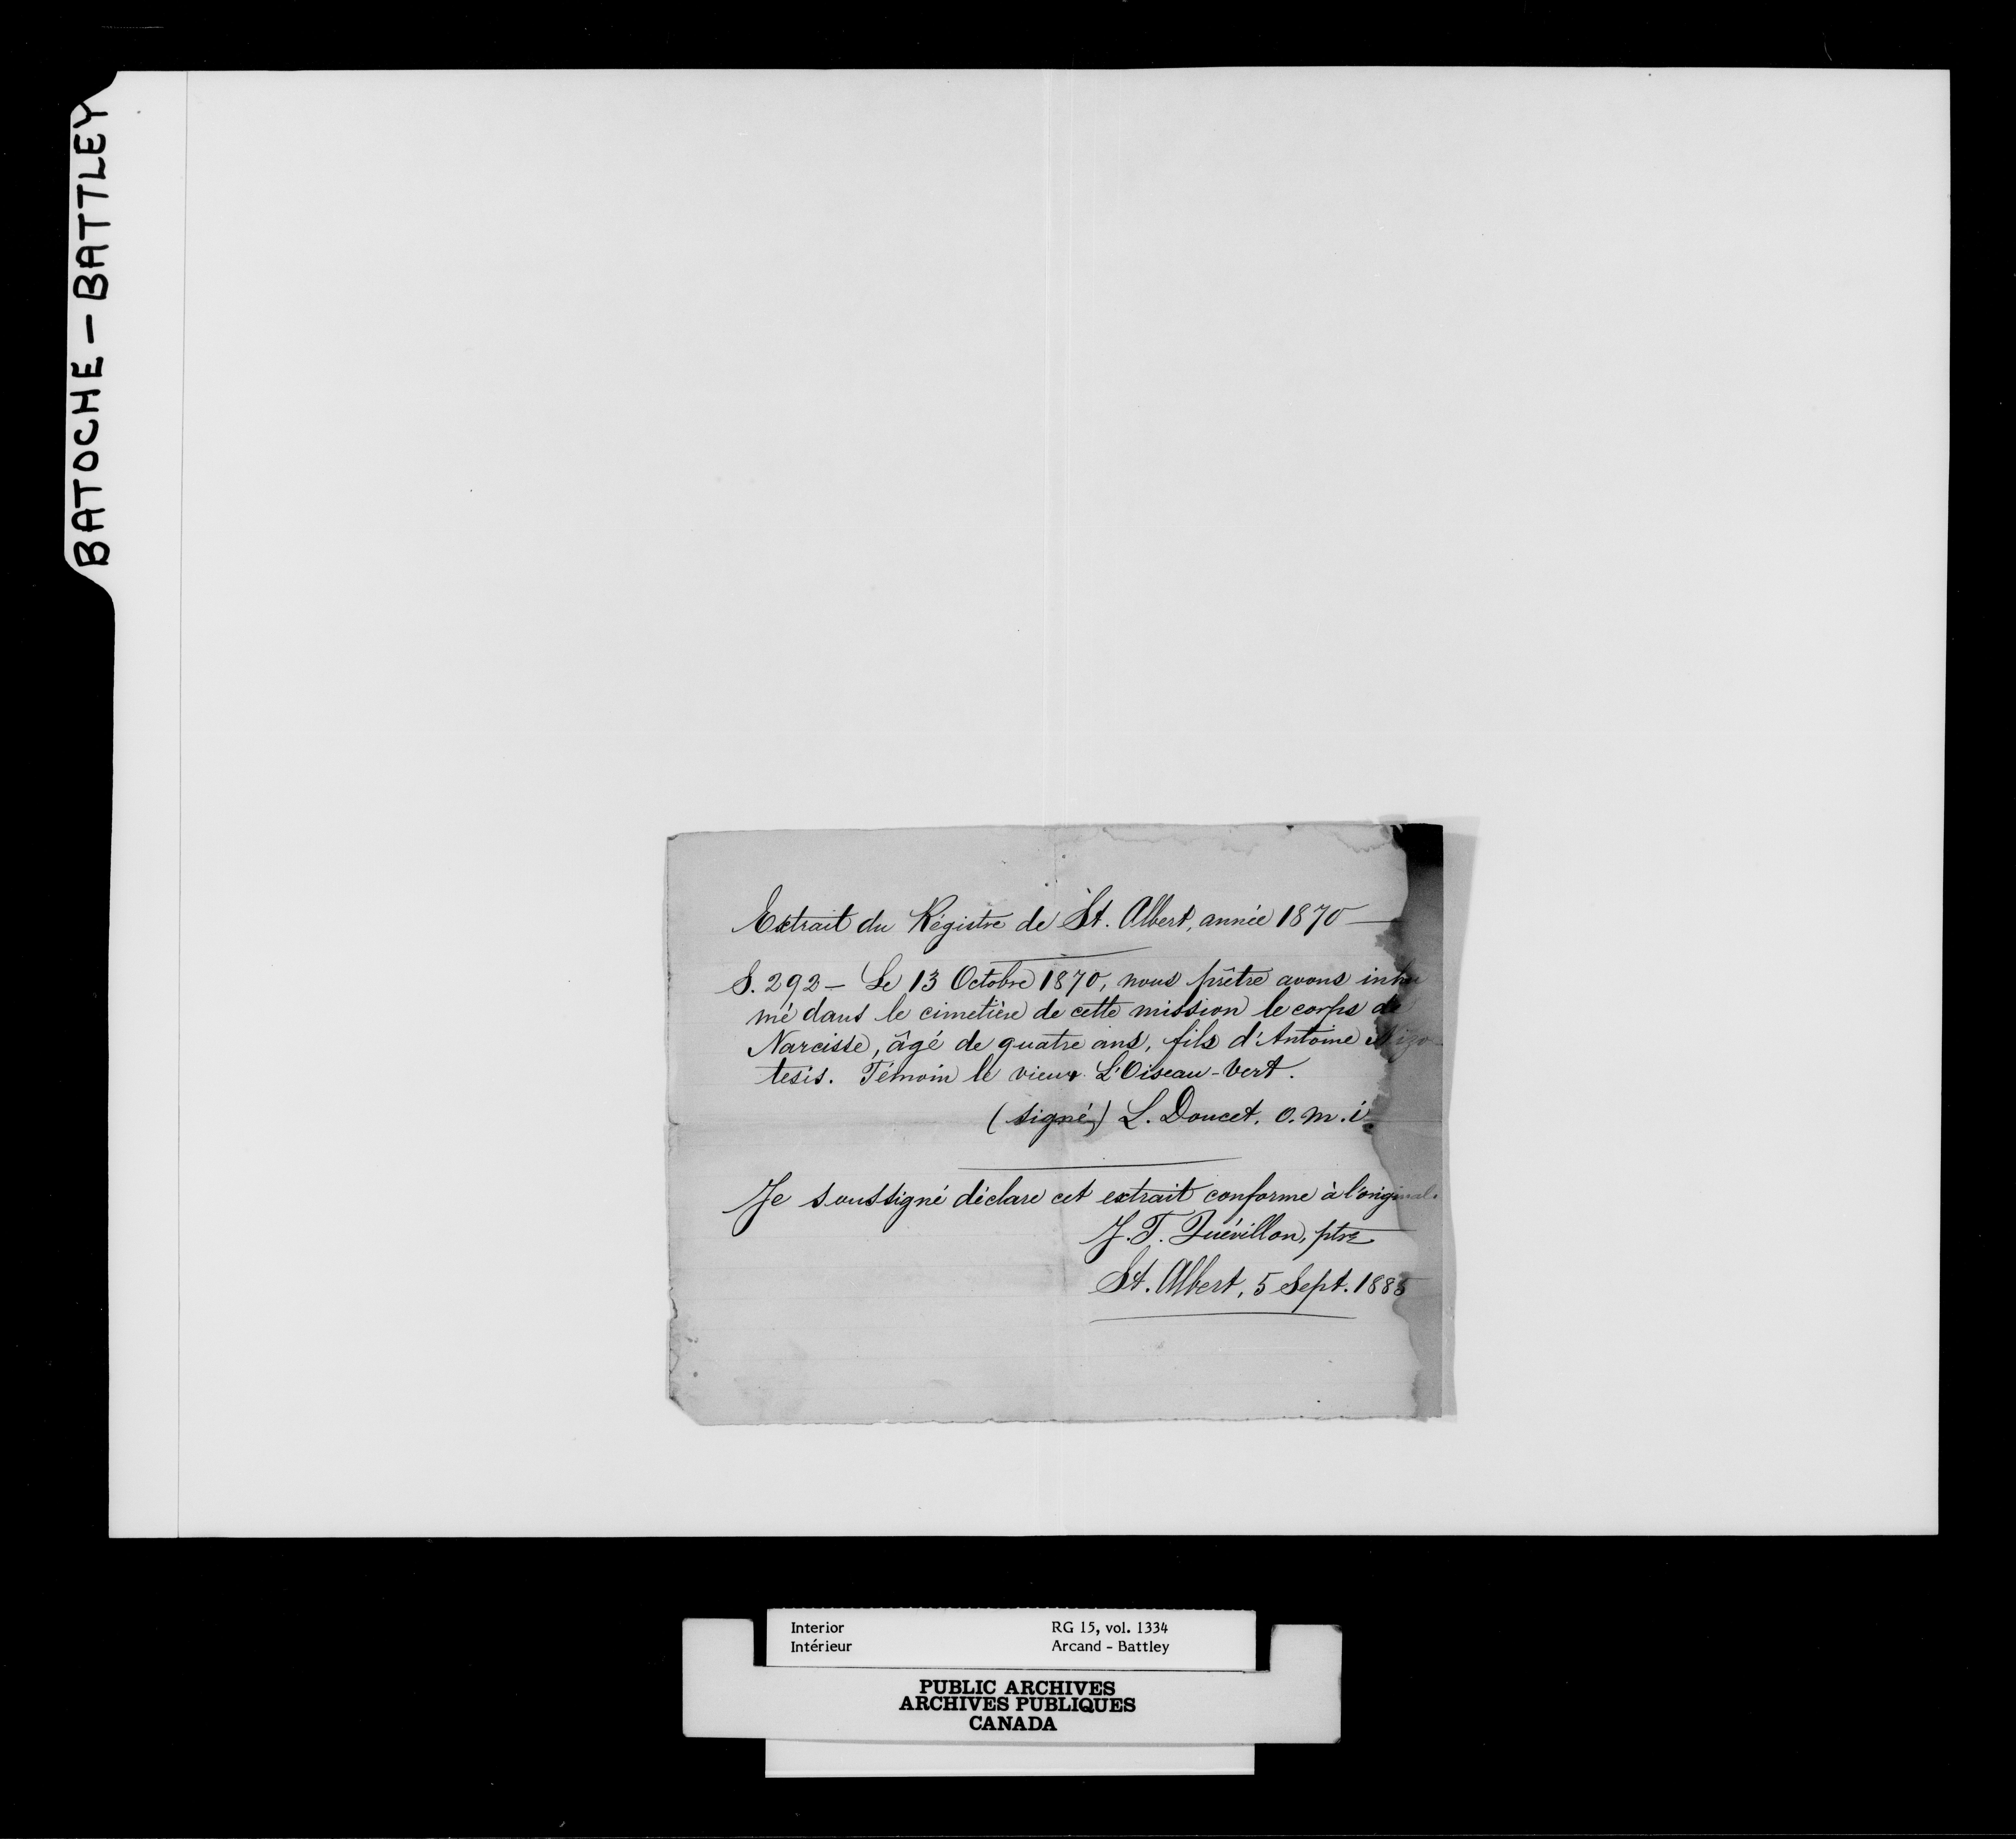 BATOCHE - BATTLEY
Extrait du Régistre de St. Albert, année 1870 —
S. 292 — Le 13 Octobre 1870, nous prêtre avons inhu
mé dans le cimetière de cette mission le corps de
Narcisse, âgé de quatre ans, fils d'Antoine
tesis. Témoin le vieux L'Oiseau-Vert.
(signé) L. Doucet, o.m.i.
Je soussigné déclare cet extrait conforme à l'original.
J. T. Quévillon, ptre
St. Albert, 5 Sept. 1885
Interior RG 15, vol. 1334
Intérieur Arcand - Battley
PUBLIC ARCHIVES
ARCHIVES PUBLIQUES
CANADA